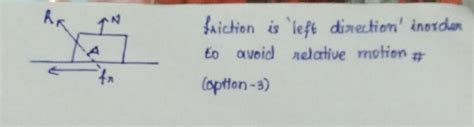 R N
A
fr
friction is 'left direction' inorder
to avoid relative motion #
(option-3)